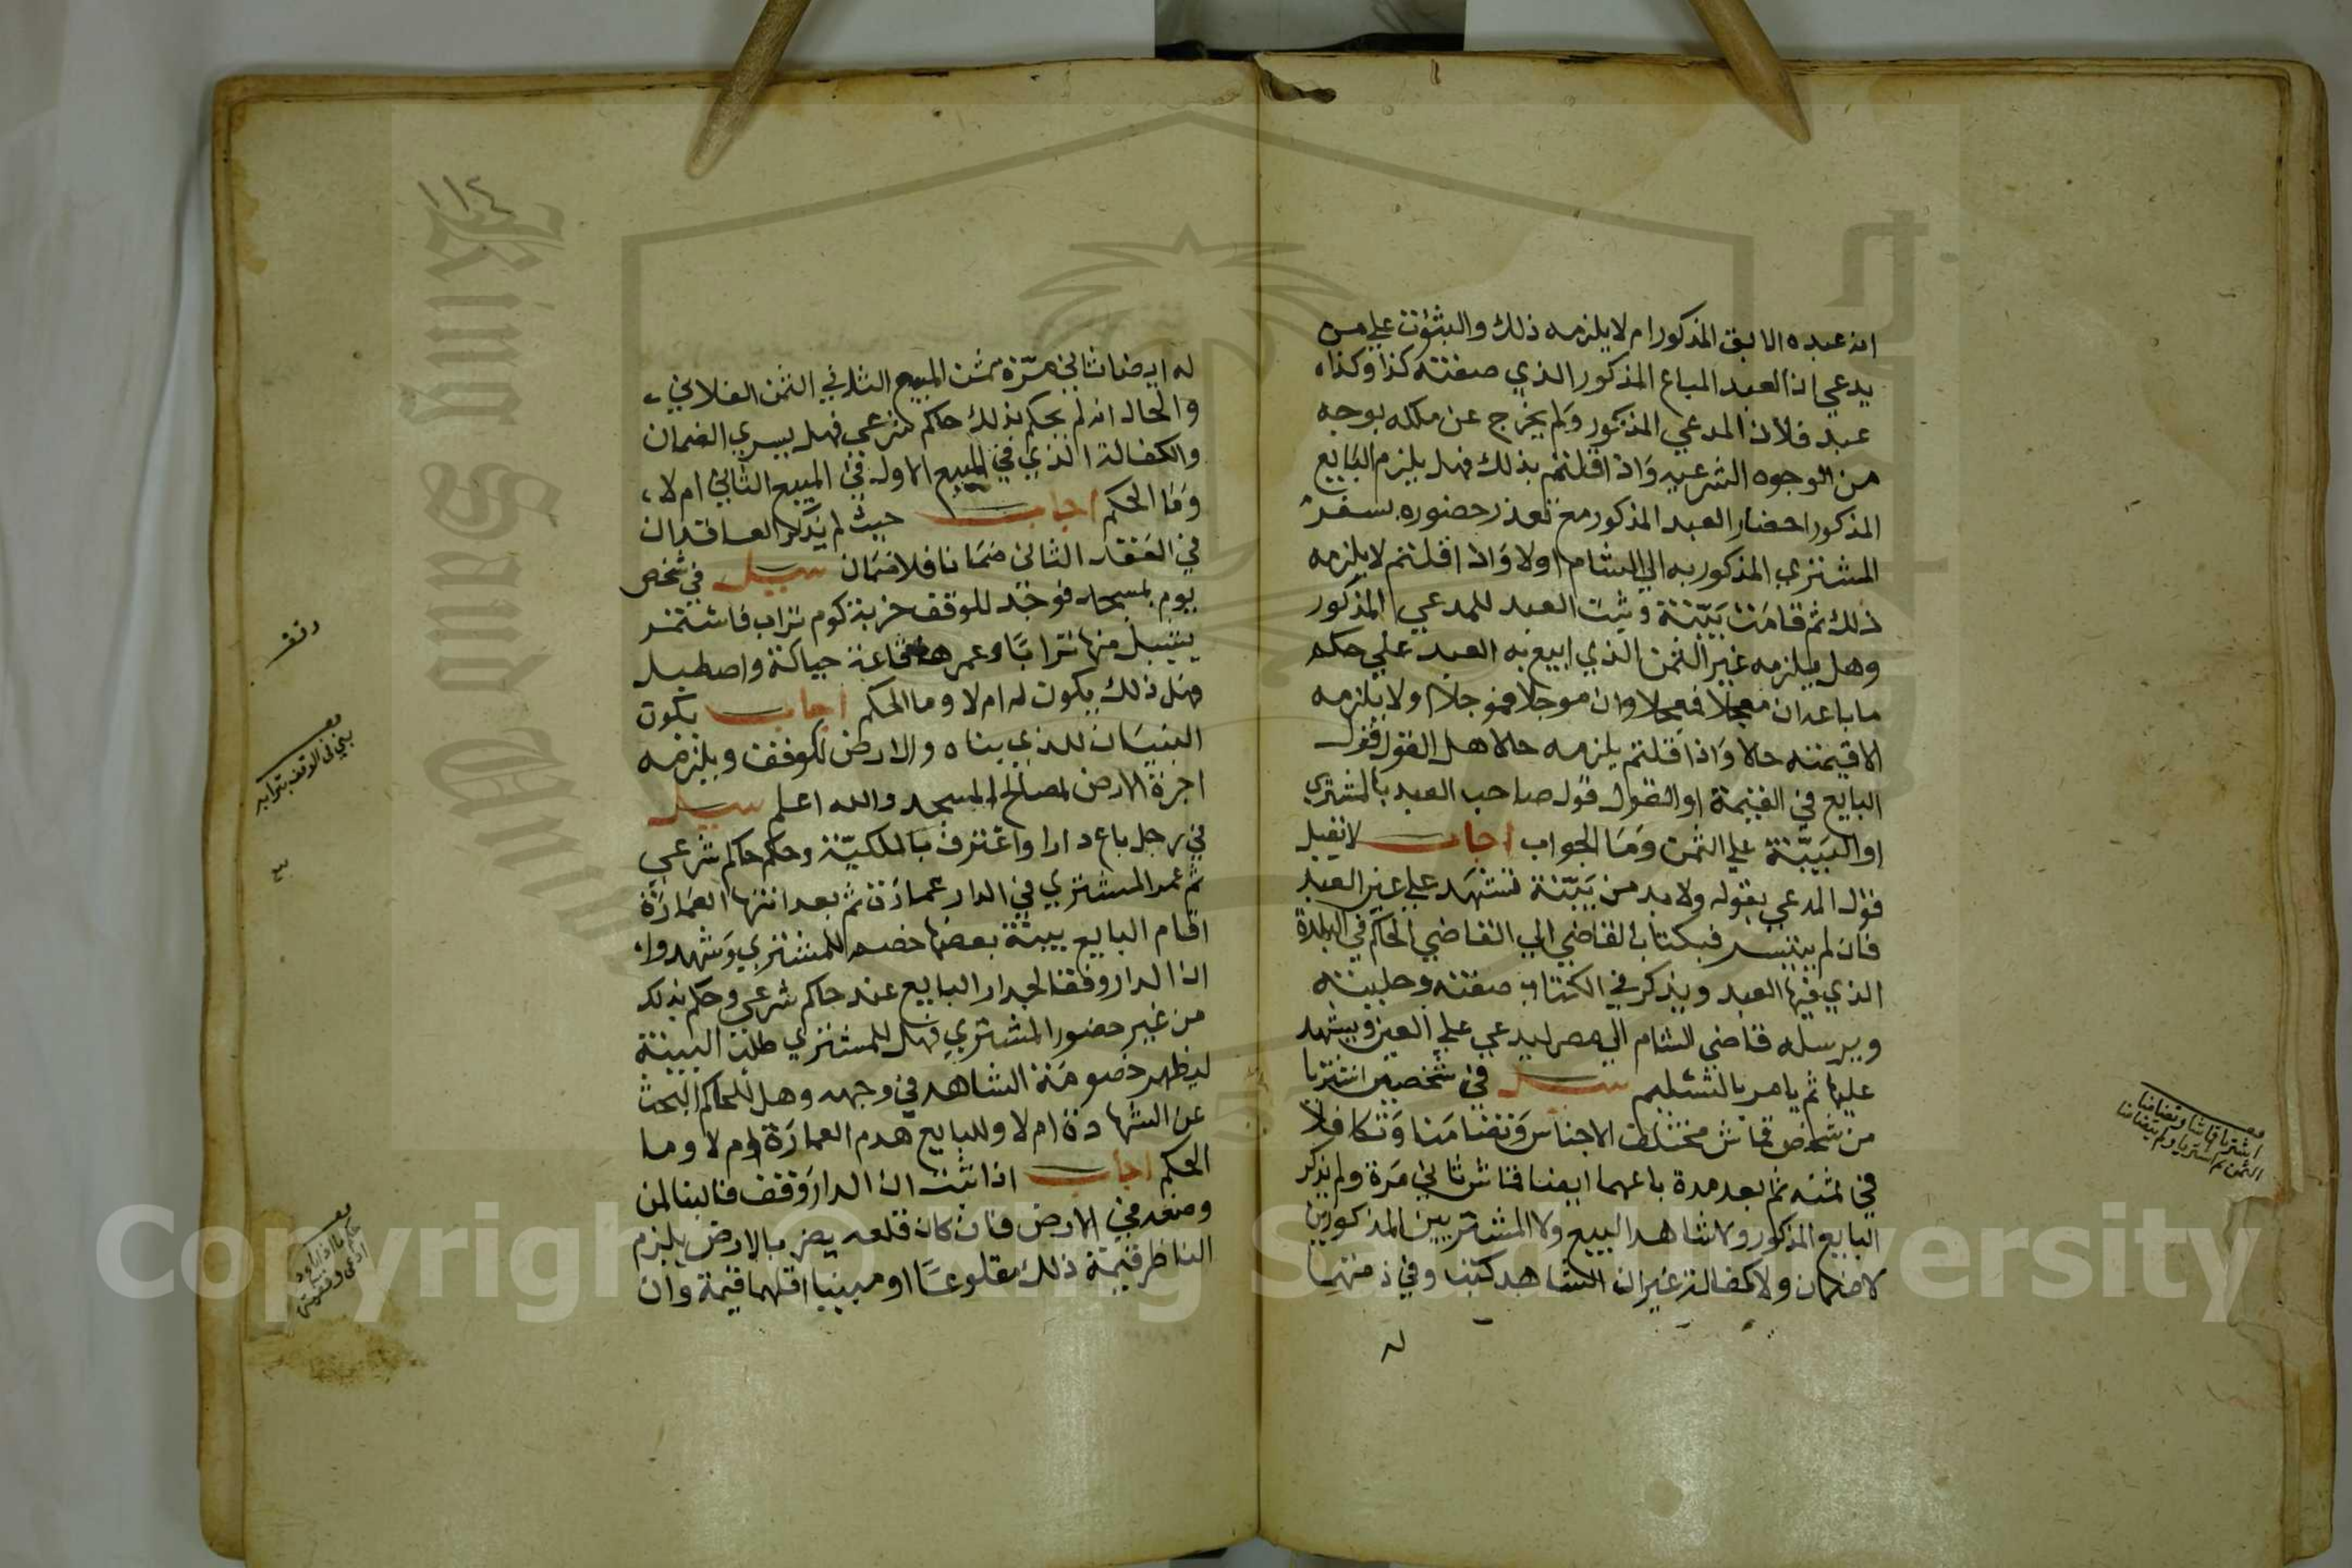 ان عبده الابق المذكور ام لا يلزمه ذلك والبثوت علي من
يدعي ان العبد المباع المذكور الذي صفته كذا وكذا
عبد فلان المدعي المذكور ولم يخرج عن ملكه بوجه
من الوجوه الشرعيه واذا قلتم بذلك فهل يلزم البايع
المذكور احضار العبد المذكور مع تعذر حضوره بسفر
المشتري المذكور به الي الشام اولا واذا قلتم لا يلزمه
ذلك ثم قامت بينة وثبت العبد للمدعي المذكور
وهل يلزمه غير الثمن الذي ابيع به العبد علي حكم
ما باعه ان معجلا فمعجلا وان موجلا فموجلا او لا يلزمه
الا قيمته حالا واذا قلتم يلزمه حالا هل القول قول
البايع في القيمة او القول قول صاحب العبد بالمشتري
او البينة علي الثمن وما الجواب اجاب لا يقبل
قول المدعي بقوله ولا بد من بينة تشهد علي عين العبد
فان لم يتيسر فبكتاب القاضي الي القاضي الحاكم في البلدة
الذي فيها العبد ويذكر في الكتاب صفته وحليته
ويرسله قاضي الشام الي مصر ليدعي علي العين ويشهد
عليها ثم يامر بالتسليم سيل في شخصين اشتريا
من شخص قماش مختلف الاجناس وتضامنا وتكافلا
في ثمنه ثم بعد مدة باعهما ايضا قماش ثاني مرة ولم يذكر
البايع المذكور ولا شاهد البيع ولا المشتريين المذكورين
لا ضمان ولا كفالة غير ان الشاهد كتب وفي ذمتهما
له
اشتريا قماشا وتضامنا
الثمن ثم اشتريا ولم يتضامنا
١١٤
له ايضا ثاني مرة ثمن المبيع الثاني الثمن الفلاني
والحال انه لم يحكم بذلك حاكم شرعي فهل يسري الضمان
والكفالة الذي في المبيع الاول في المبيع الثاني ام لا
وما الحكم اجاب حيث لم يذكر العاقدان
في العقد الثاني ضمانا فلا ضمان سيل في شخص
يوم بمسجد فوجد للوقف خربة كوم تراب فاستمر
يشيل منها ترابا وعمرها قاعة حياكة واصطبل
فهل ذلك يكون له ام لا وما الحكم اجاب يكون
البنيان للذي بناه والارض للوقف ويلزمه
اجرة الارض لمصالح المسجد والله اعلم سيل
في رجل باع دارا واعترف بالملكية وحكم حاكم شرعي
ثم عمر المشتري في الدار عمارة ثم بعد انتها العمارة
اقام البايع بينة بعضها خصم للمشتري وشهدوا
ان الدار وقفا لجد ار البايع عند حاكم شرعي وحكم بذلك
من غير حضور المشتري فهل للمشتري طلب البينة
ليظهر خصومة الشاهد في وجهه وهل للحاكم البحث
عن الشهادة ام لا وللبايع هدم العمارة ام لا وما
الحكم اجاب اذا ثبت ان الدار وقف فالبنا لمن
وضعه في الارض فان كان قلعه يضر بالارض يلزم
الناظر قيمة ذلك مقلوعا او مبنيا اقلهما قيمة وان
وقف
بني في الوقف بترابه
بيع
Copyright © King Saud University
King Saud University